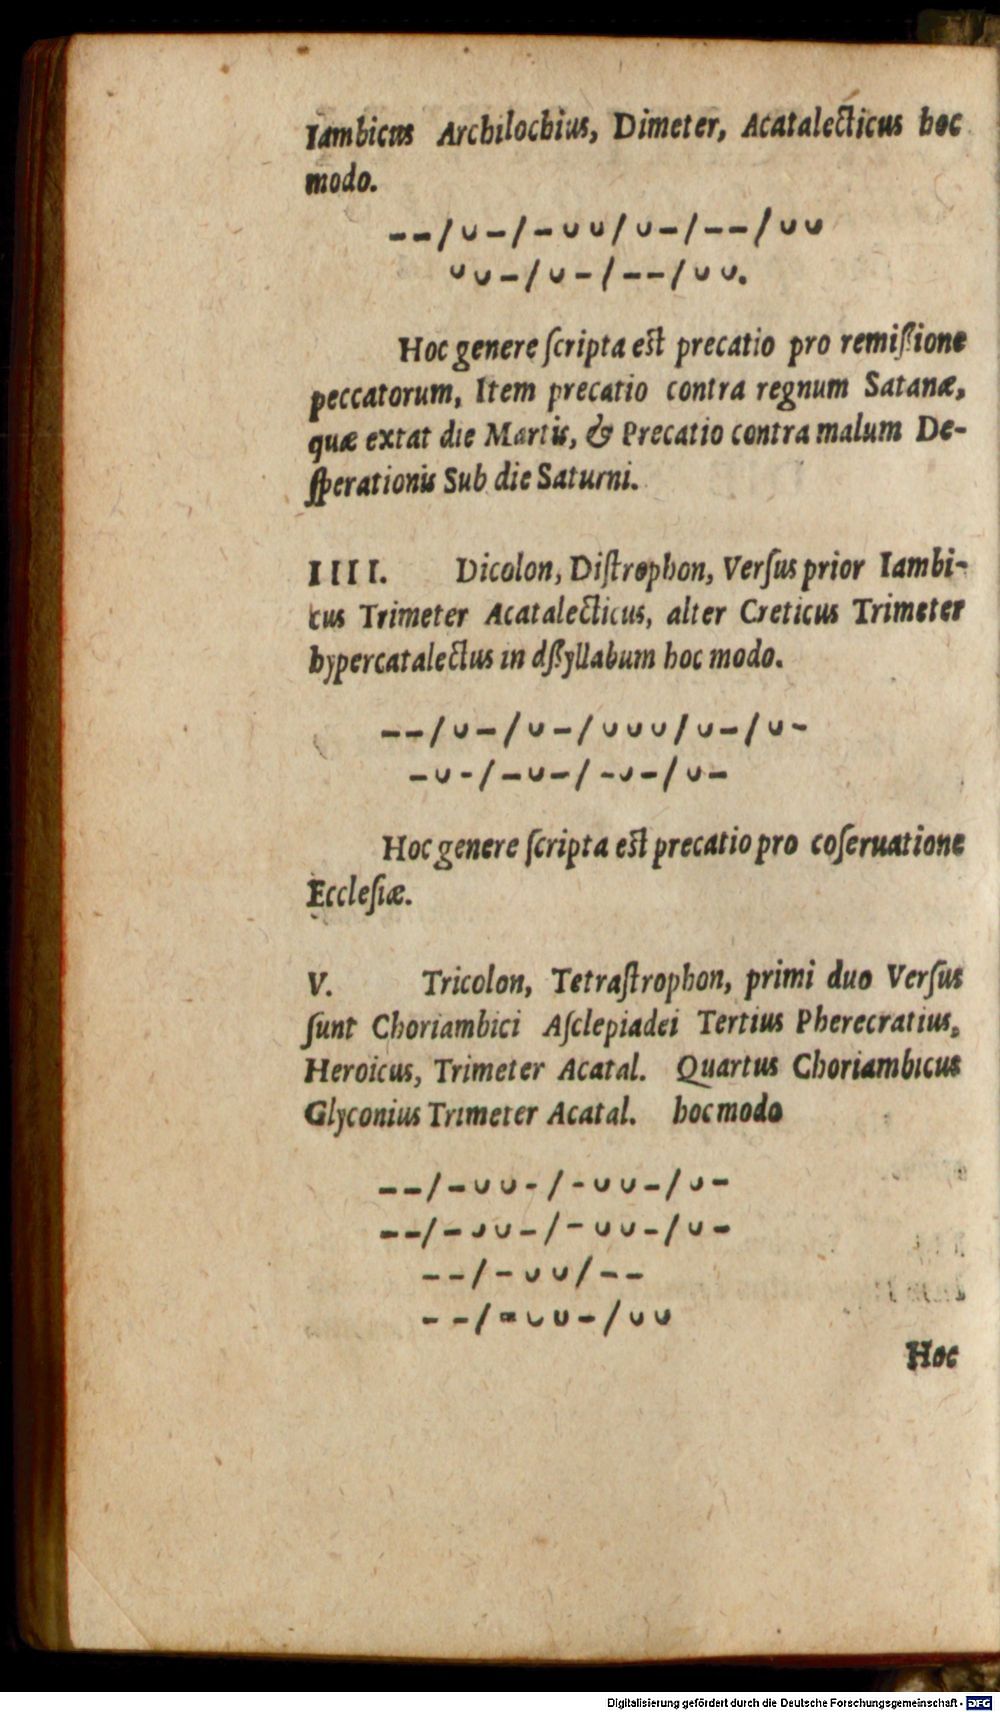 Iambicus Archilochius, Dimeter, Acatalecticus hoc
modo.
– – / ∪ – / – ∪ ∪ / ∪ – / – – / ∪ ∪
∪ ∪ – / ∪ – / – – / ∪ ∪.
Hoc genere ſcripta eſt precatio pro remiſsione
peccatorum, Item precatio contra regnum Satanæ,
quæ extat die Martis, & Precatio contra malum De-
ſperationis Sub die Saturni.
IIII. Dicolon, Diſtrophon, Verſus prior Iambi-
cus Trimeter Acatalecticus, alter Creticus Trimeter
hypercatalectus in dſsyllabum hoc modo.
– – / ∪ – / ∪ – / ∪ ∪ ∪ / ∪ – / ∪ –
– ∪ – / – ∪ – / – ∪ – / ∪ –
Hoc genere ſcripta eſt precatio pro coſeruatione
Eccleſiæ.
V. Tricolon, Tetraſtrophon, primi duo Verſus
ſunt Choriambici Aſclepiadei Tertius Pherecratius,
Heroicus, Trimeter Acatal. Quartus Choriambicus
Glyconius Trimeter Acatal. hoc modo
– – / – ∪ ∪ – / – ∪ ∪ – / ∪ –
– – / – ∪ ∪ – / – ∪ ∪ – / ∪ –
– – / – ∪ ∪ / – –
– – / – ∪ ∪ – / ∪ ∪
Hoc
Digitalisierung gefördert durch die Deutsche Forschungsgemeinschaft - DFG